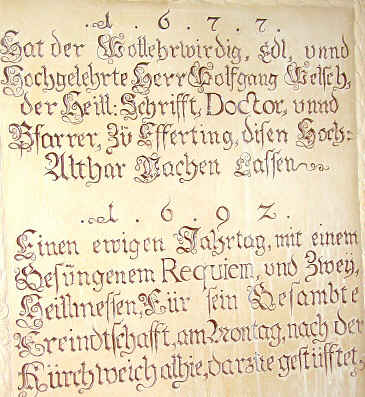 .1.6.7.7.
Hat der Wollehrwirdig, Edl, vnnd
Hochgelehrte Herr Wolfgang Welsch,
der Heill: Schrifft, Doctor, vnnd
Pfarrer, Zü Efferting, disen Hoch:
Althar Machen Lassen
.1.6.9.2.
Einen ewigen Jahrtag, mit einem
Gesüngenem Requiem, vnd Zweÿ,
Heillmessen, Für sein Gesambte
Freindtschafft, am Montag, nach der
Kürchweich alhie, darzue gestüfftet,